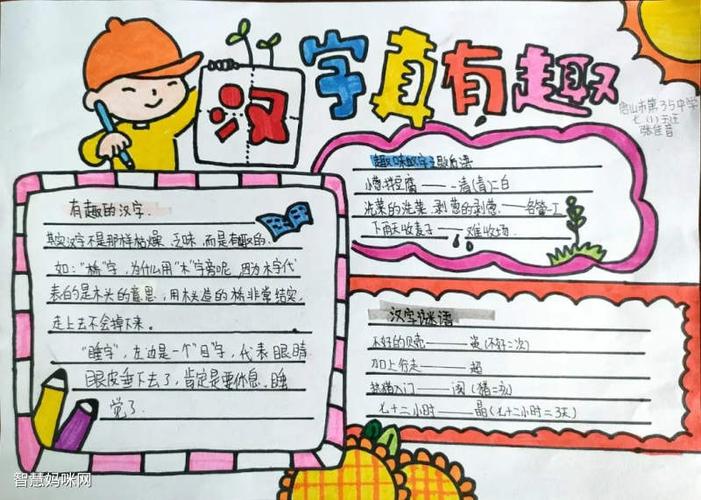 汉字真有趣
唐山市第35中学
七(1)
张佳音
有趣的汉字.
其实汉字不是那样枯燥、乏味,而是有趣的.
如:"桥"字,为什么用"木"字旁呢,因为木字代
表的是木头的意思,用木头造的桥非常结实,
走上去不会掉下来。
"睡字",左边是一个"目"字,代表眼睛
眼皮垂下去了,肯定是要休息、睡
觉了.
趣味汉字之歇后语
小葱拌豆腐——一清(青)二白
洗菜的洗菜,剥葱的剥葱.——各管一工
下雨天收麦子——难收场.
汉字谜语
不好的贝壳——
加上行走——超
热猪入门——阂(猪=亥)
七十二小时——晶(七十二小时=3天)
智慧妈咪网